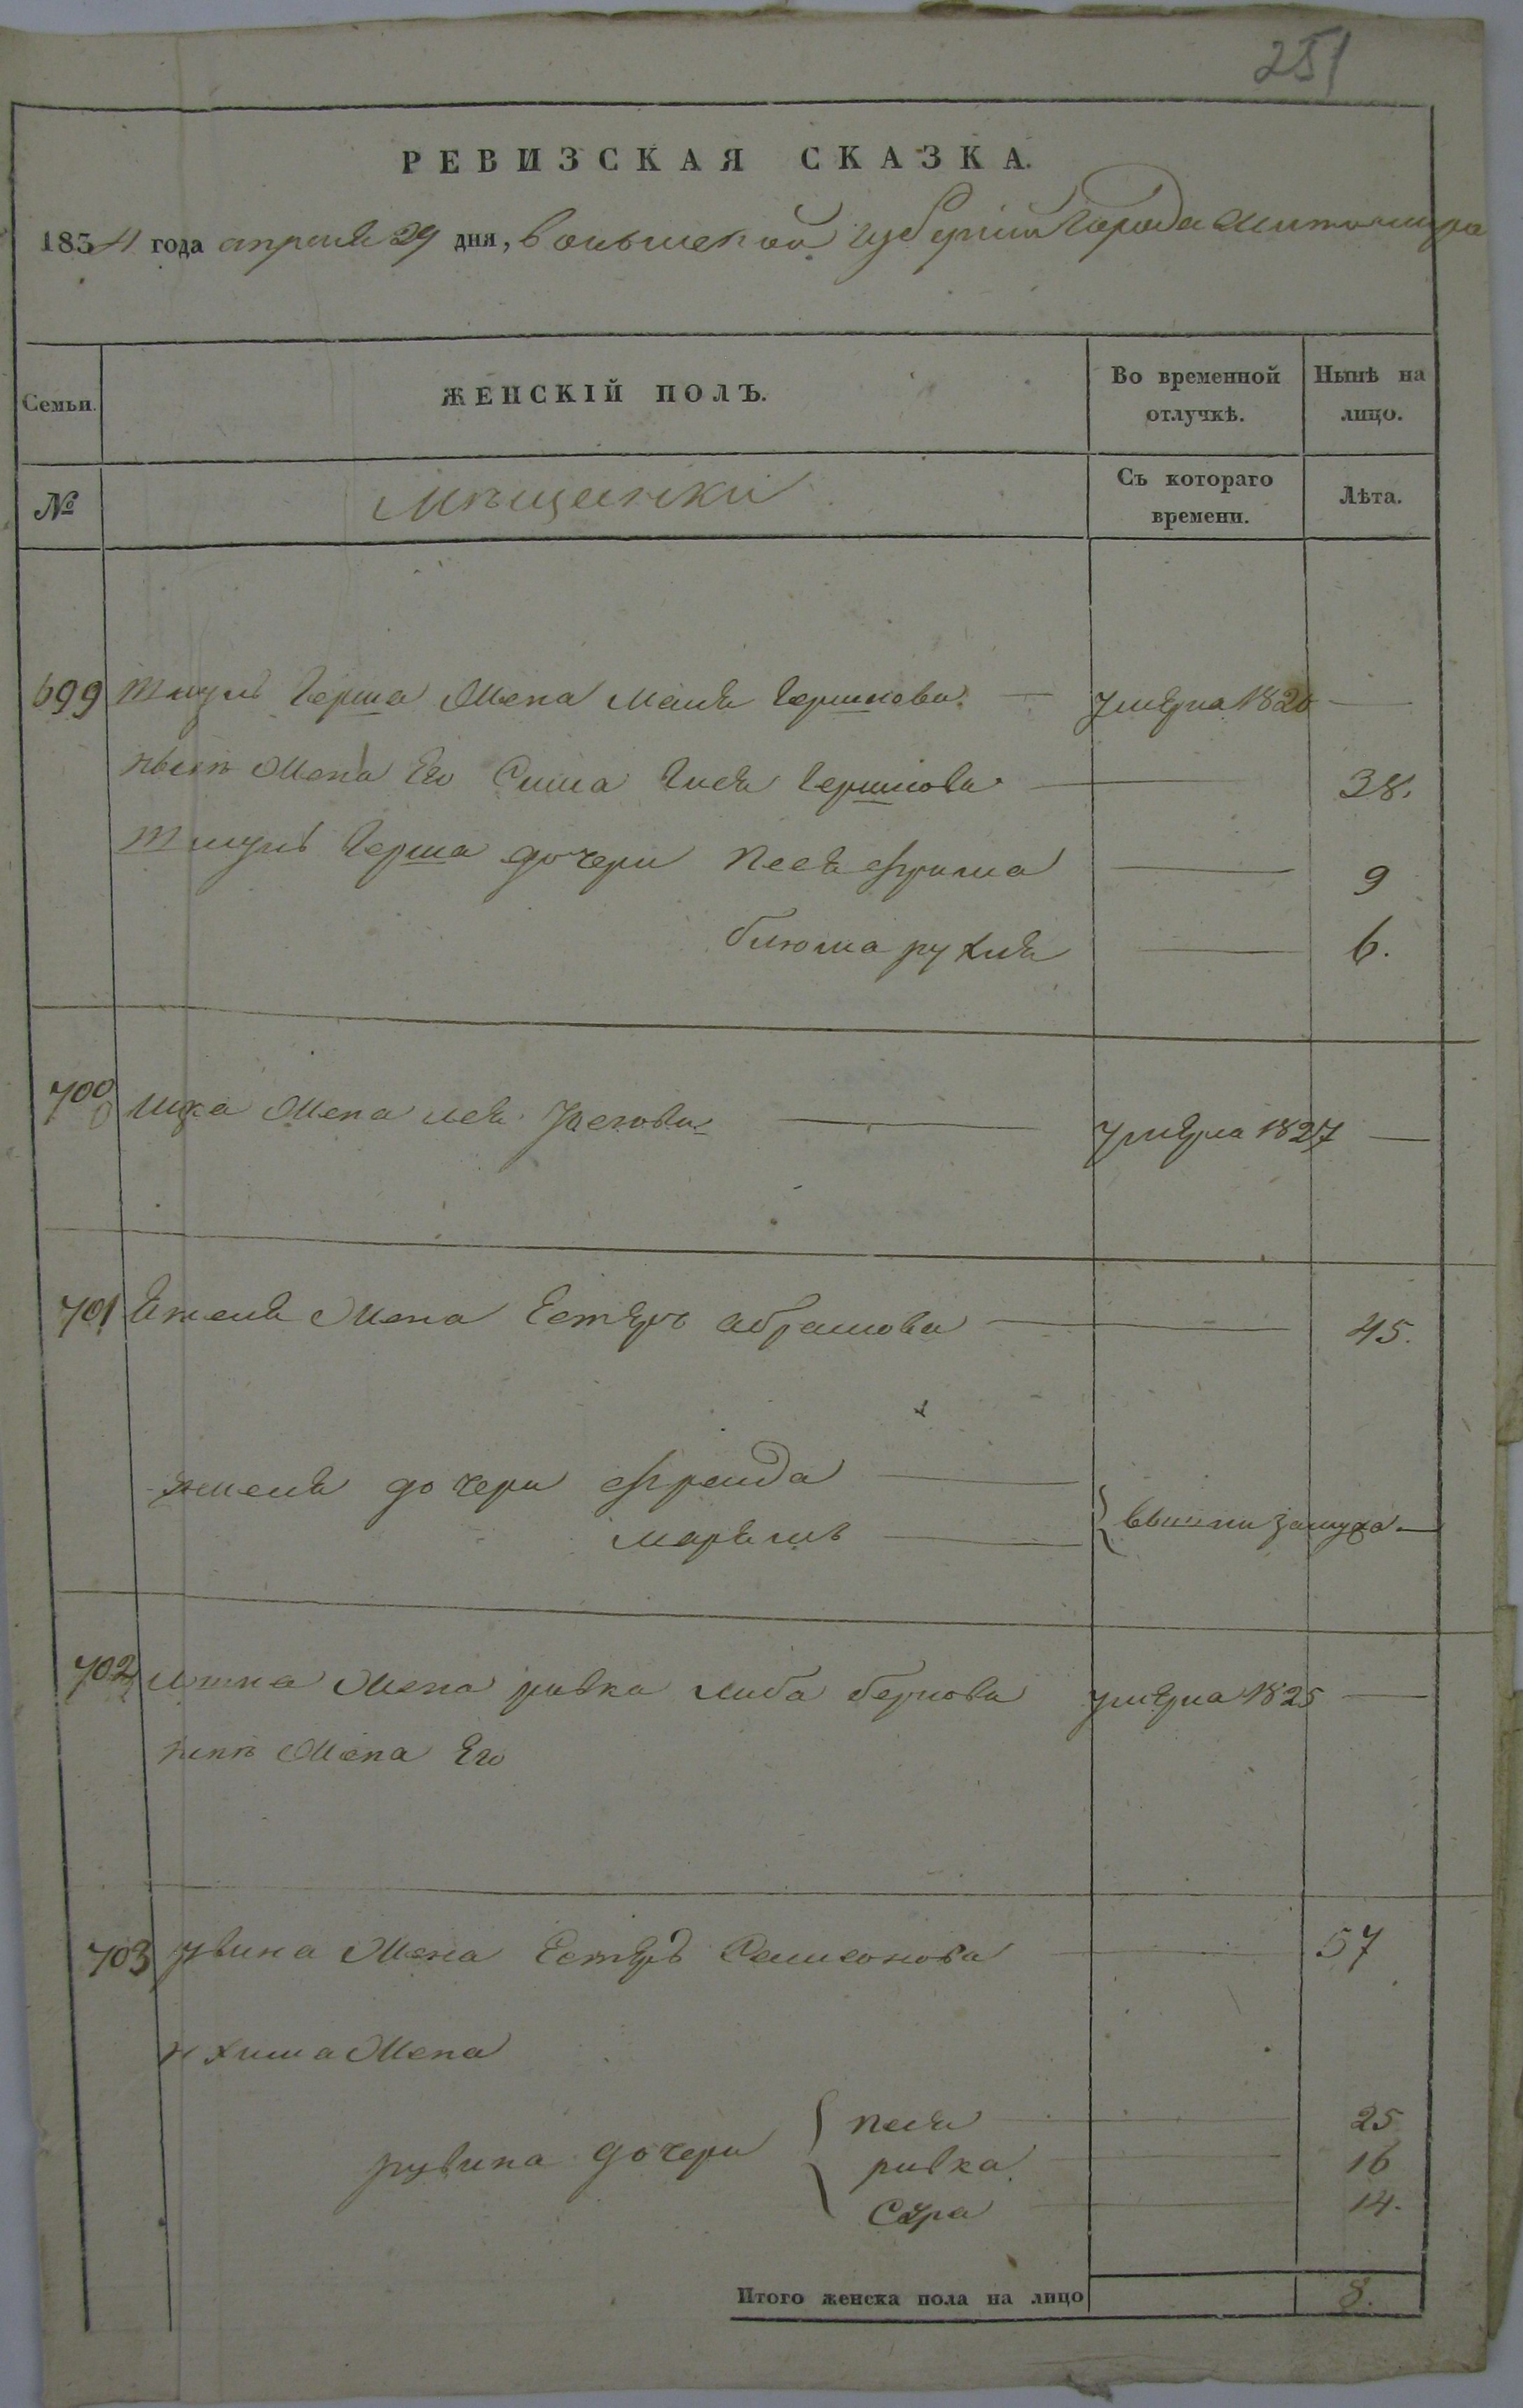 251
РЕВИЗСКАЯ СКАЗКА.
1834 года апреля 29 дня, волынской губернии города Житомира
Семьи.
ЖЕНСКІЙ ПОЛЪ.
Во временной отлучкѣ.
Нынѣ на лицо.
№
Мѣщанки
Съ котораго времени.
Лѣта.
699 Шмуль Герша Жена Маля Гершкова — умерла 1820 —
Жена Его Сима Гися Гершкова — 38.
Шмуль Герша дочери Песя Фрима — 9
блюма рухля — 6.
700 Ицка Жена лея — умерла 1827 —
701 Жена Естеръ абрамова — 45.
дочери Фрейда —
Марьямъ — вышли замужъ —
702 Итка Жена ривка либа беркова умерла 1825 —
Жена Его
703 рувина Жена Естеръ Самсонова — 57
Жена
рувина дочери Песя — 25
ривка — 16
Сура — 14.
Итого женска пола на лицо 8.